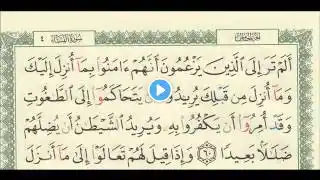 الجزء الخامس سورة النساء ٤
أَلَمْ تَرَ إِلَى ٱلَّذِينَ يَزْعُمُونَ أَنَّهُمْ ءَامَنُوا۟ بِمَآ أُنزِلَ إِلَيْكَ
وَمَآ أُنزِلَ مِن قَبْلِكَ يُرِيدُونَ أَن يَتَحَاكَمُوٓا۟ إِلَى ٱلطَّٰغُوتِ
وَقَدْ أُمِرُوٓا۟ أَن يَكْفُرُوا۟ بِهِۦ وَيُرِيدُ ٱلشَّيْطَٰنُ أَن يُضِلَّهُمْ
ضَلَٰلًۢا بَعِيدًا ٦٠ وَإِذَا قِيلَ لَهُمْ تَعَالَوْا۟ إِلَىٰ مَآ أَنزَلَ